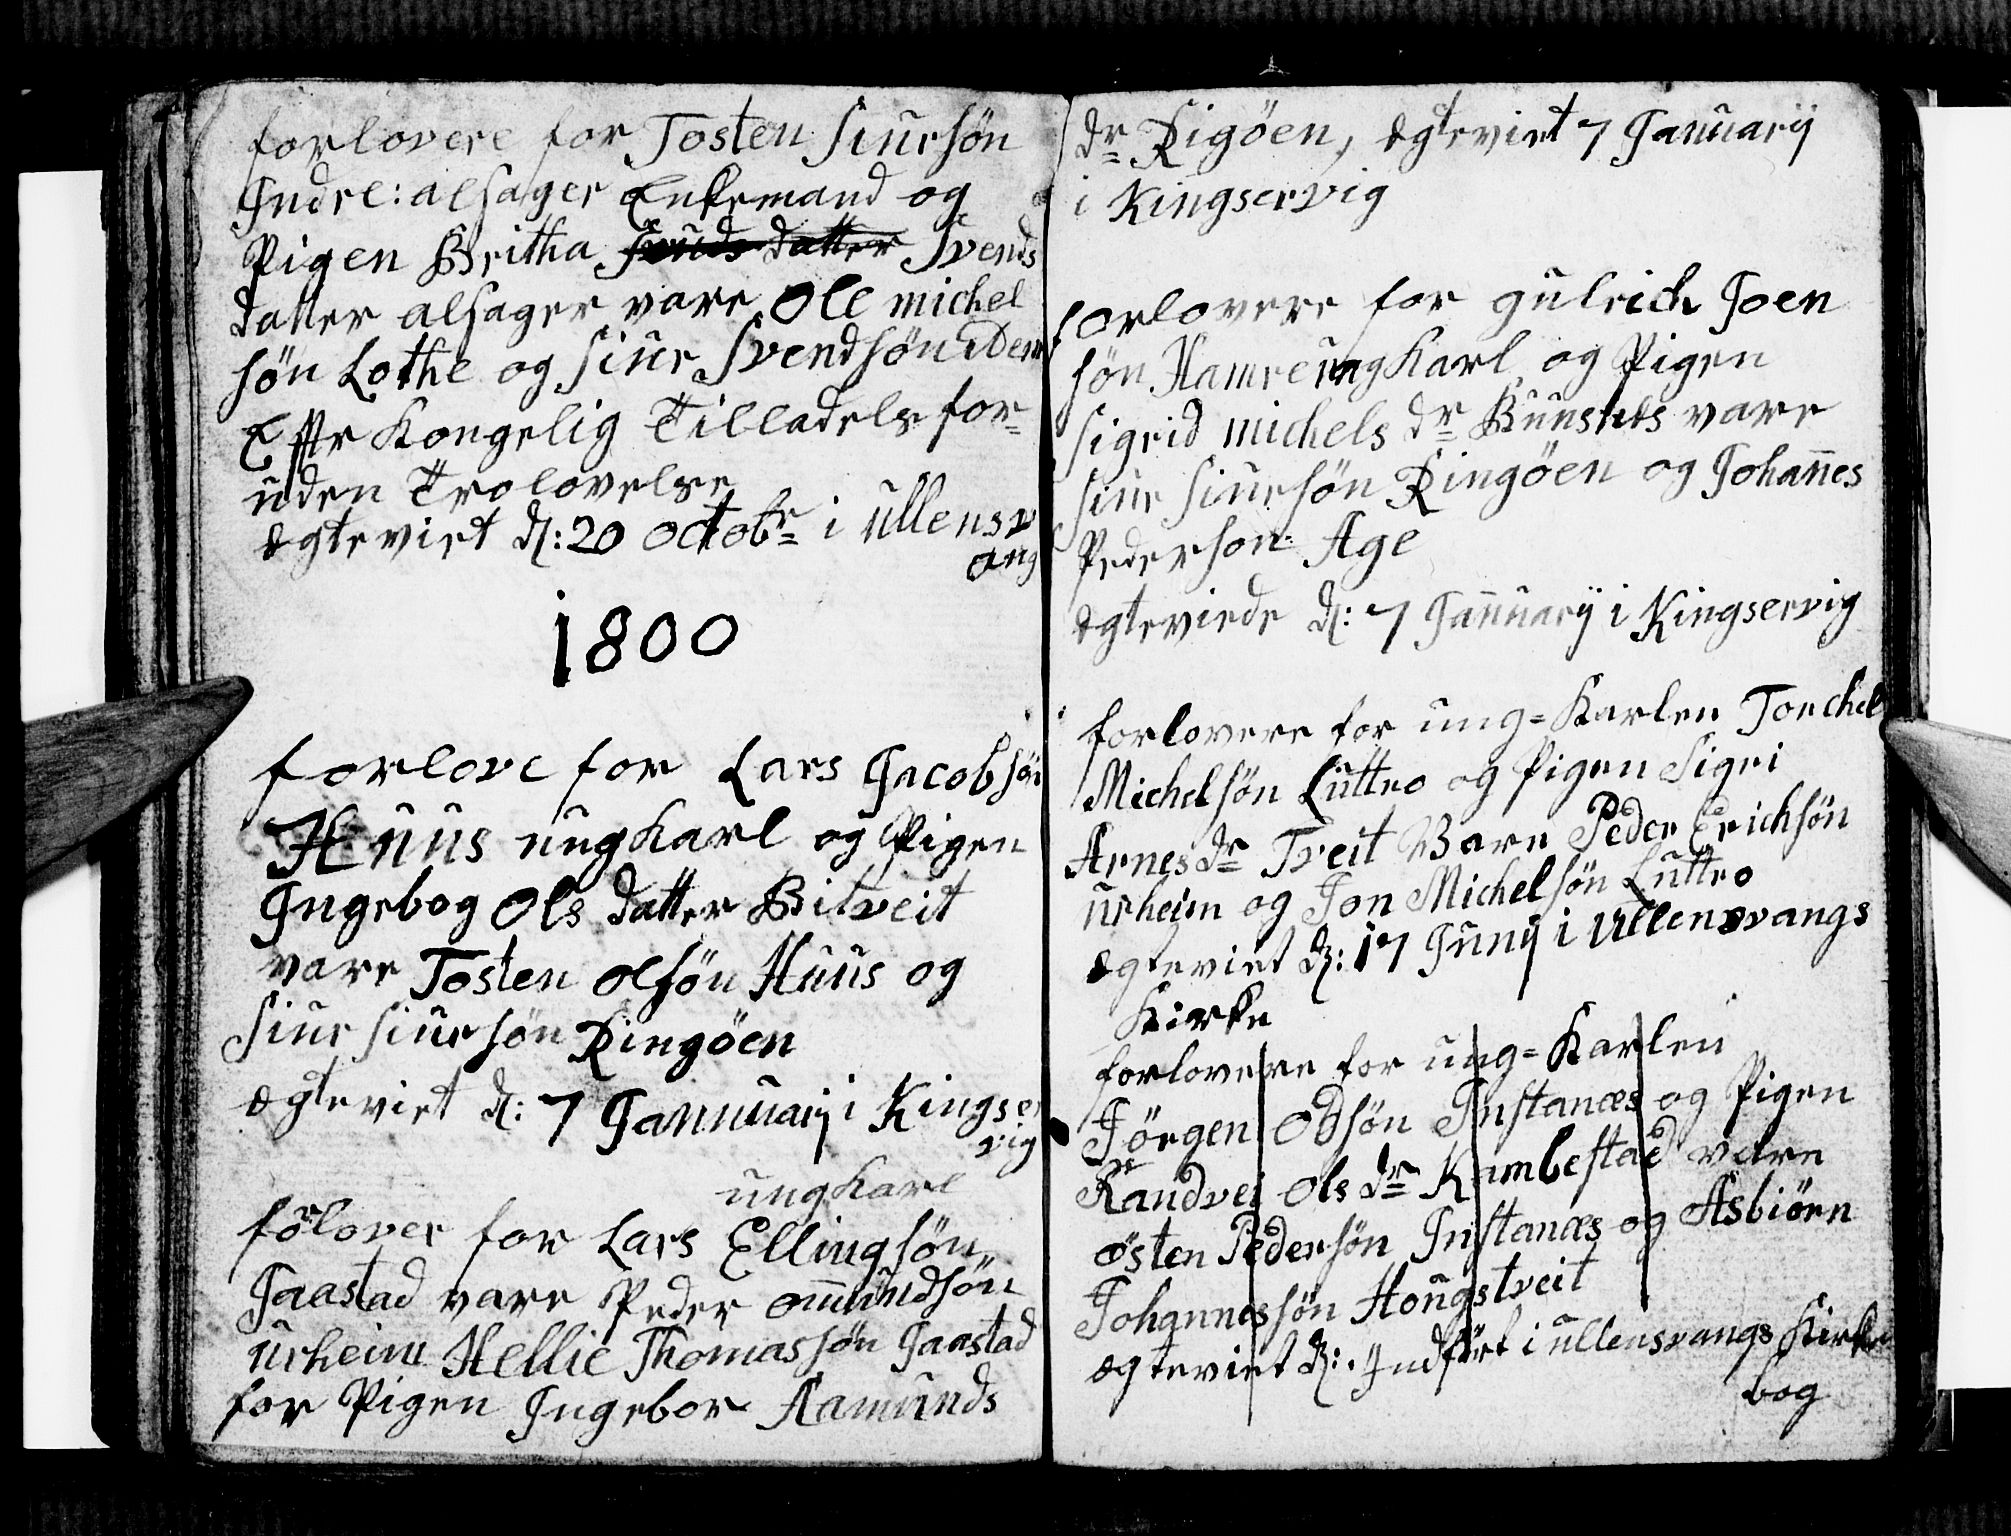 forlovere for Tosten Siursön
Indre: alsager Enkemand og
Pigen Britha Svends datter Svends
datter alsager vare Ole michel
sön Lothe og Siur Svendsön idem
Efftr Kongelig Tilladelse for-
uden Trolovelse
ægteviet d: 20 octobr i ullensv
ang
1800
forlove for Lars Jacobsön
Huus ungkarl og Pigen
Ingebog Ols datter Bitveit
vare Tosten olsön Huus og
Siur Siursön Ringöen
ægteviet d: 7 Januarij i Kingser
vig
ungkarl
forlover for Lars Ellingsön
Jaastad vare Peder ommundsön
urheim Hellie Thomassön Jaastad
for Pigen Ingebor Aamunds
dr Rigöen, ægteviet 7 Januarij
i Kingservig
forlovere for gulrich Joen
sön Hamre ungkarl og Pigen
Sigrid michels dr Buustets vare
Siur Siursön Ringöen og Johañes
Pederson Age
ægteviede d: 7 Januarij i Kingservig
forlovere for ung=Karlen Torchel
Michelsön Luttro og Pigen Sigri
Arnes dr Tveit Vare Peder Erichsön
urheim og Jon Michelsön Luttro
ægteviet d: 17 Junij i ullensvangs
Kirke
forlovere for ung=Karlen
Jörgen Odsön Instanæs og Pigen
Randvei Ols dr Kambestad vare
östen Pedersön Instanæs og Asbiörn
Johannessön Hougstveit
ægteviet d: Indfört i ullensvangs Kirke
bog